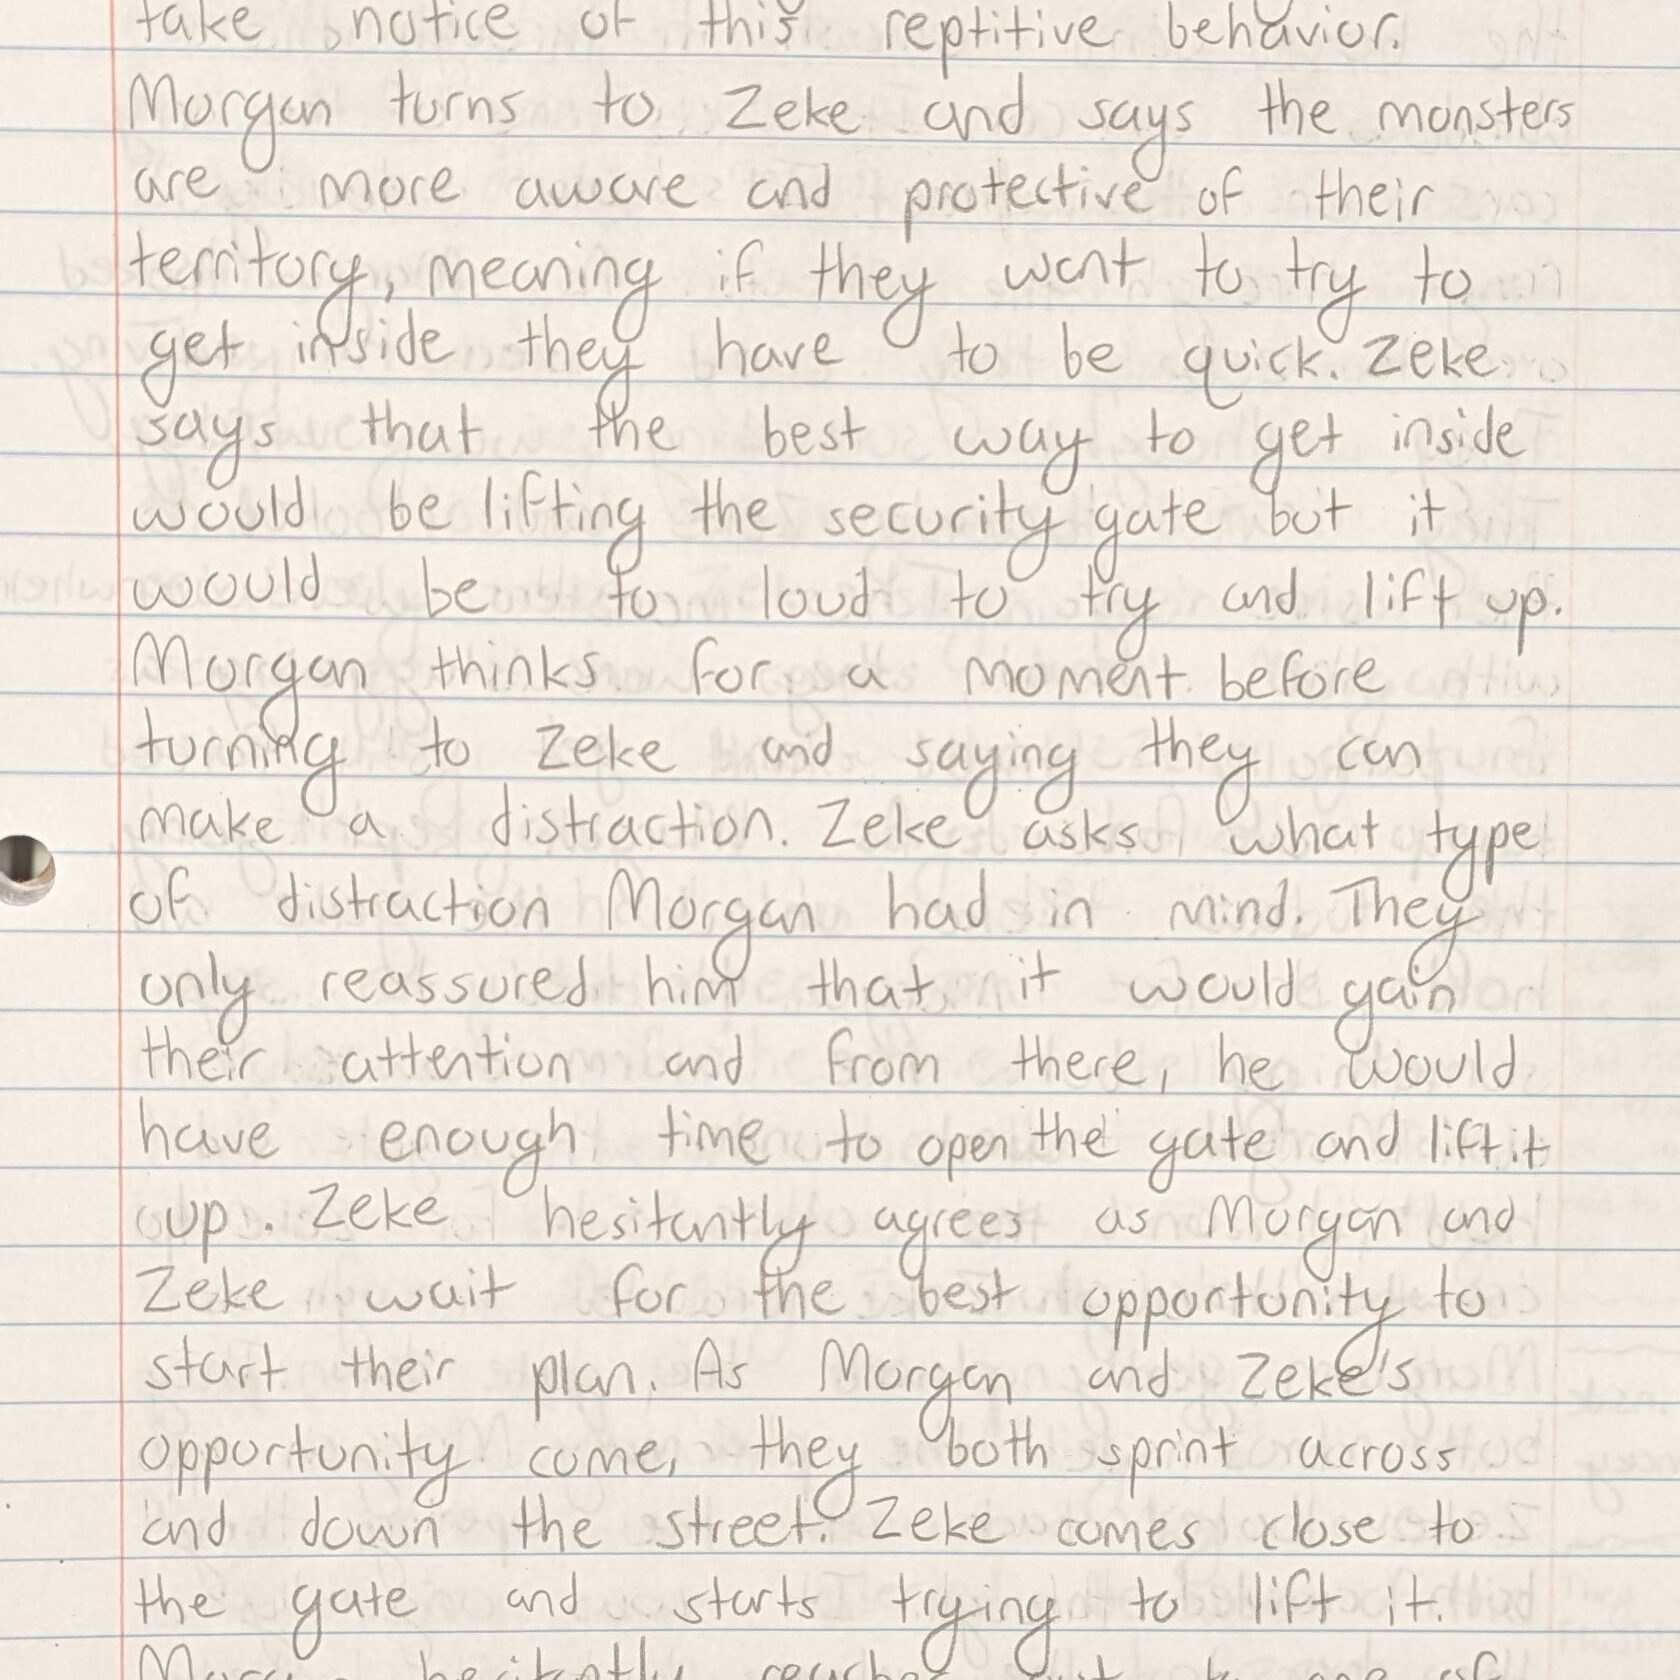 take notice of this reptitive behavior.
Morgan turns to Zeke and says the monsters
are more aware and protective of their
territory, meaning if they want to try to
get inside they have to be quick. Zeke
says that the best way to get inside
would be lifting the security gate but it
would be to loud to try and lift up.
Morgan thinks for a moment before
turning to Zeke and saying they can
make a distraction. Zeke asks what type
of distraction Morgan had in mind. They
only reassured him that it would gain
their attention and from there, he would
have enough time to open the gate and lift it
up. Zeke hesitantly agrees as Morgan and
Zeke wait for the best opportunity to
start their plan. As Morgan and Zeke's
opportunity come, they both sprint across
and down the street. Zeke comes close to
the gate and starts trying to lift it.
hesitantly